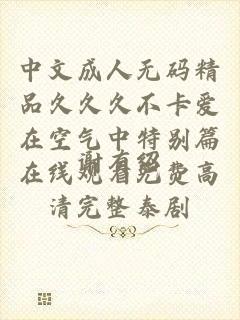 中文成人无码精
品久久久不卡爱
在空气中特别篇
在线观看免费高
清完整泰剧
谢有绍